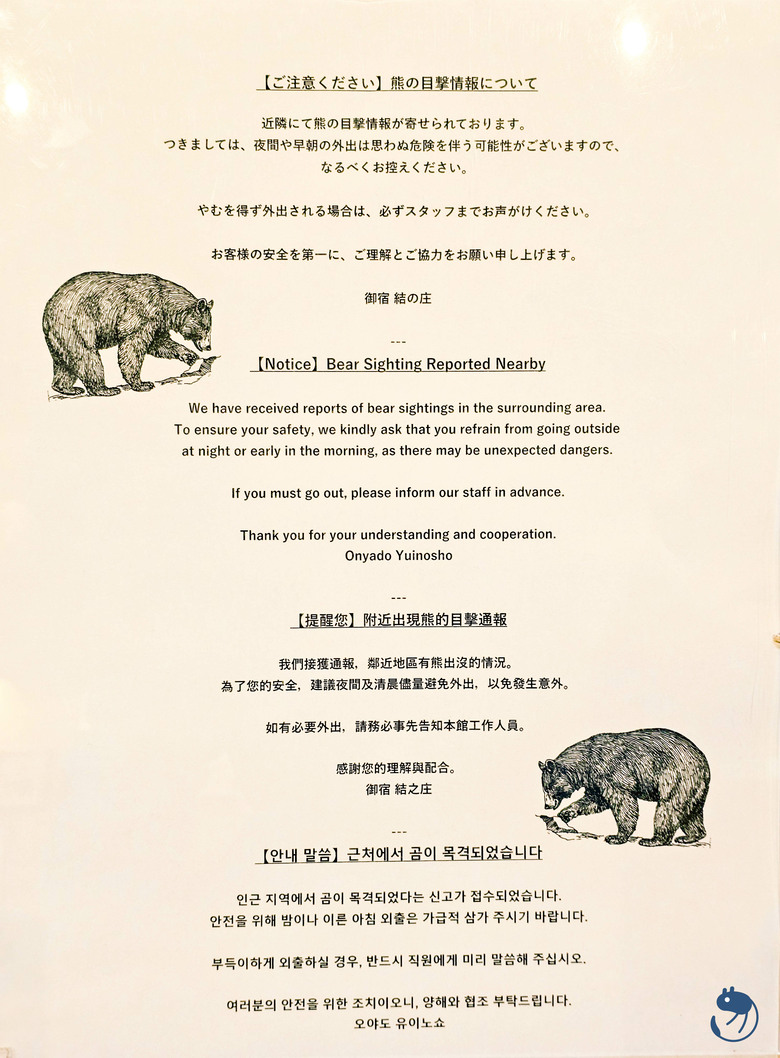 【ご注意ください】熊の目撃情報について
近隣にて熊の目撃情報が寄せられております。
つきましては、夜間や早朝の外出は思わぬ危険を伴う可能性がございますので、
なるべくお控えください。
やむを得ず外出される場合は、必ずスタッフまでお声がけください。
お客様の安全を第一に、ご理解とご協力をお願い申し上げます。
御宿 結の庄
---
【Notice】Bear Sighting Reported Nearby
We have received reports of bear sightings in the surrounding area.
To ensure your safety, we kindly ask that you refrain from going outside
at night or early in the morning, as there may be unexpected dangers.
If you must go out, please inform our staff in advance.
Thank you for your understanding and cooperation.
Onyado Yuinosho
---
【提醒您】附近出現熊的目擊通報
我們接獲通報，鄰近地區有熊出沒的情況。
為了您的安全，建議夜間及清晨儘量避免外出，以免發生意外。
如有必要外出，請務必事先告知本館工作人員。
感謝您的理解與配合。
御宿 結之庄
---
【안내 말씀】근처에서 곰이 목격되었습니다
인근 지역에서 곰이 목격되었다는 신고가 접수되었습니다.
안전을 위해 밤이나 이른 아침 외출은 가급적 삼가 주시기 바랍니다.
부득이하게 외출하실 경우, 반드시 직원에게 미리 말씀해 주십시오.
여러분의 안전을 위한 조치이오니, 양해와 협조 부탁드립니다.
오야도 유이노쇼